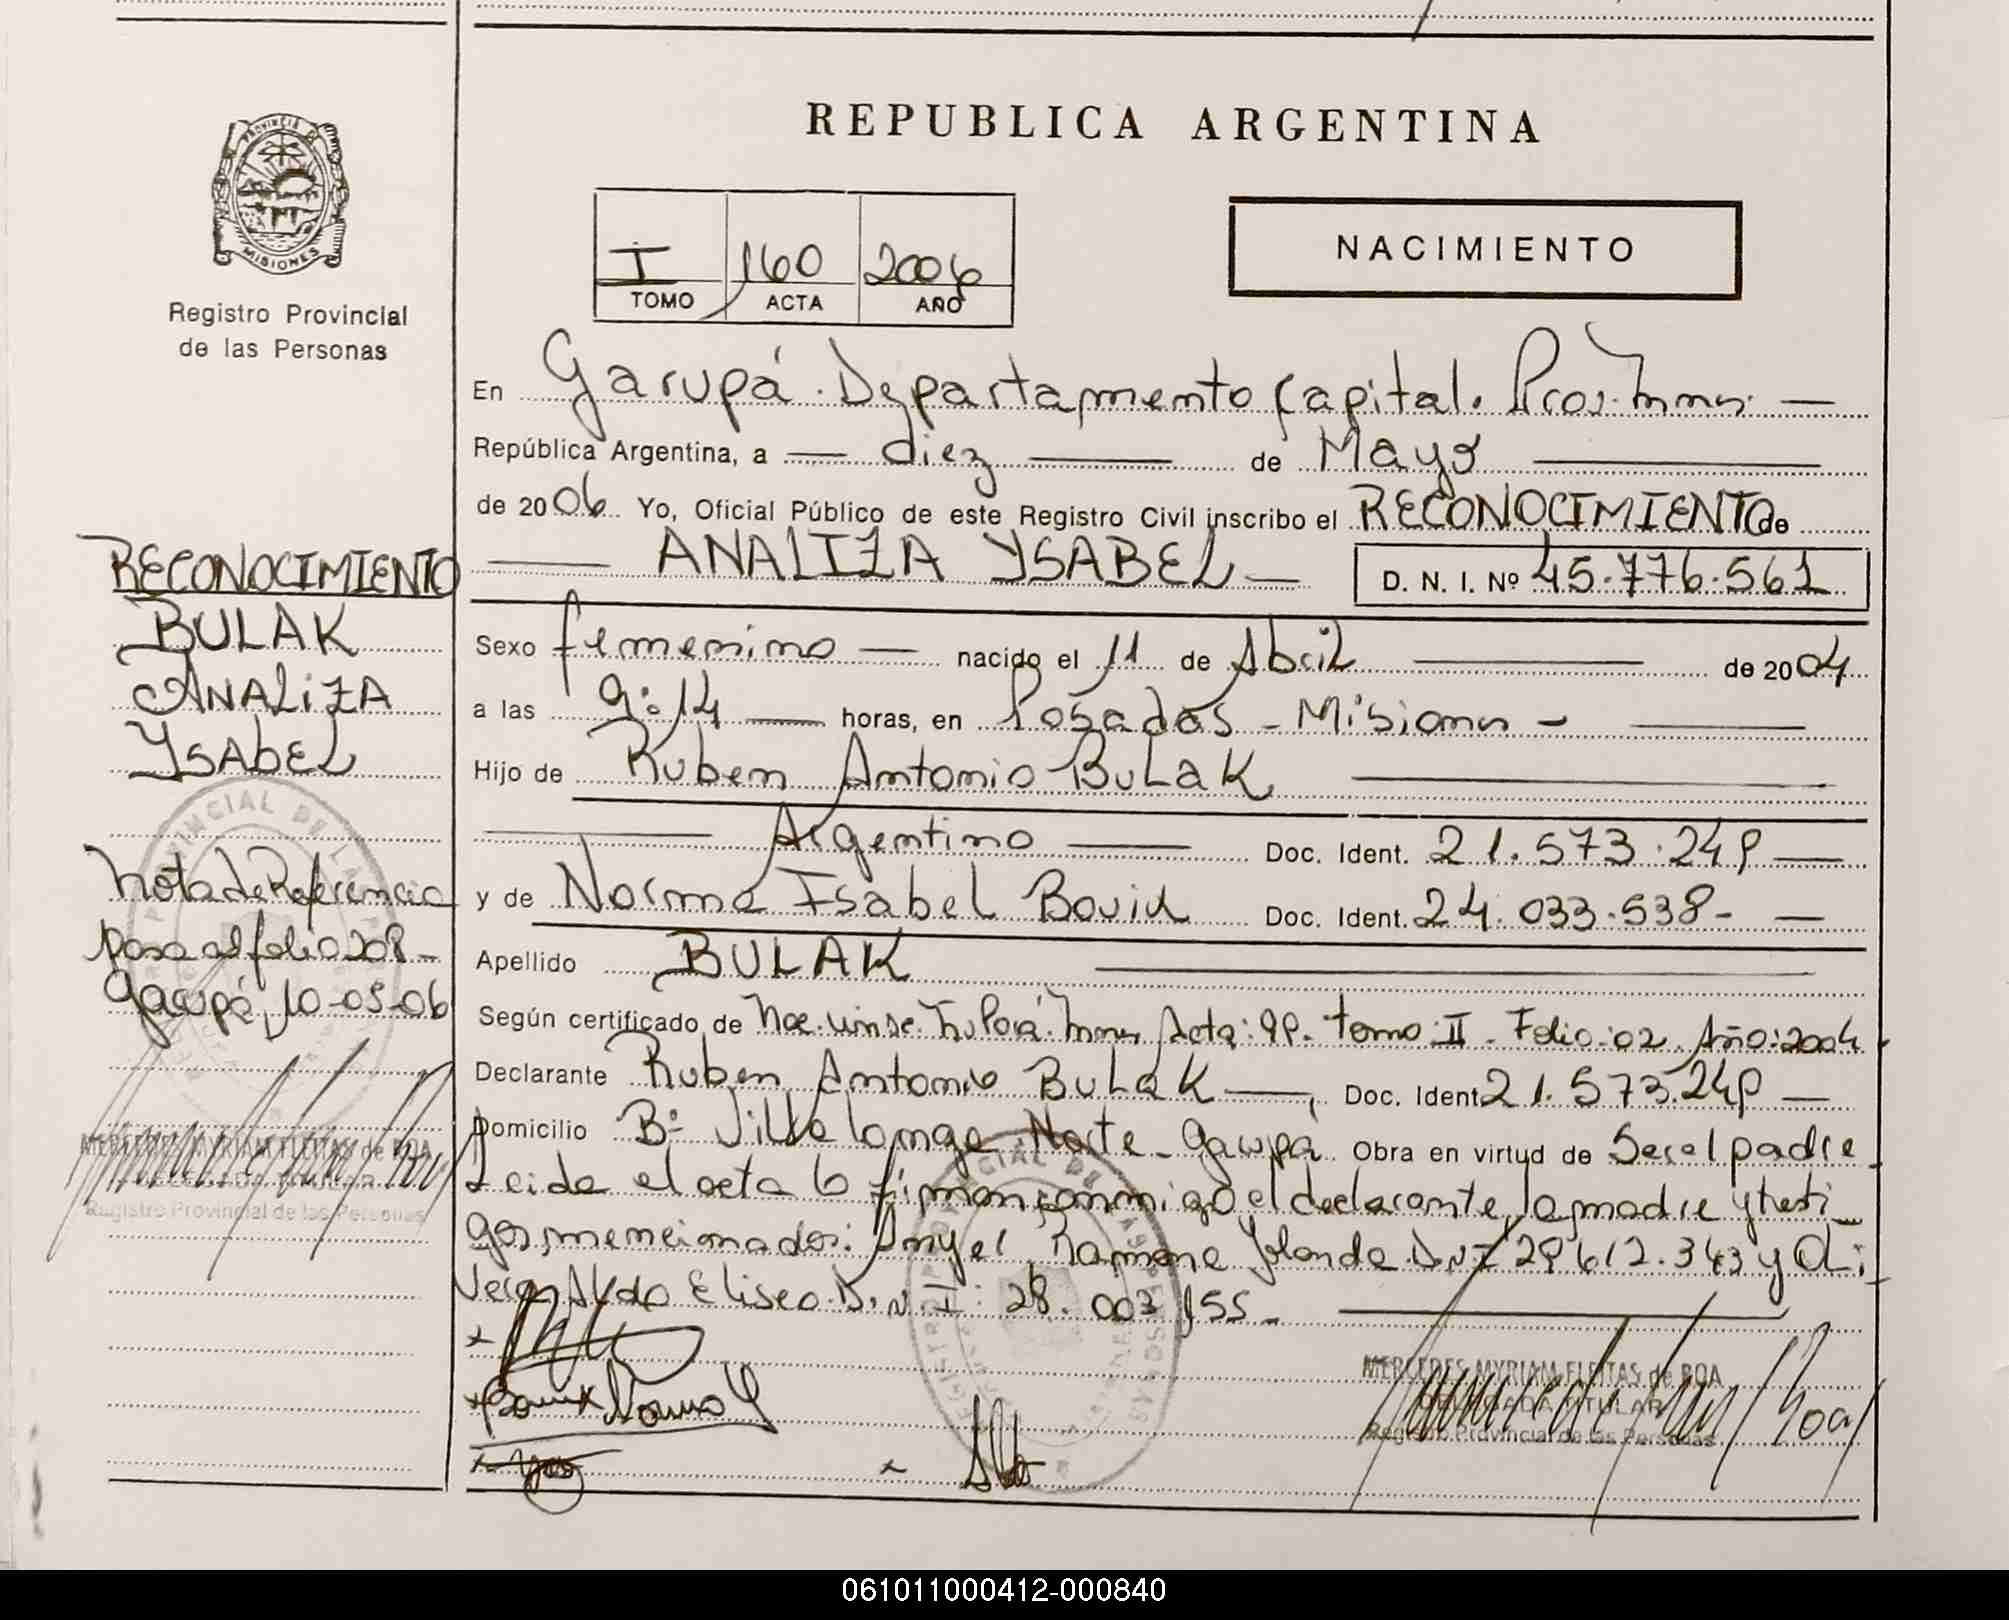 REPUBLICA ARGENTINA
PROVINCIA DE MISIONES
Registro Provincial
de las Personas
I 160 2006
TOMO ACTA AÑO
NACIMIENTO
En Garupá. Departamento Capital.
República Argentina, a diez de Mayo
de 2006 Yo, Oficial Público de este Registro Civil inscribo el RECONOCIMIENTO de
ANALIZA YSABEL D. N. I. Nº 45.776.561
Sexo femenino nacido el 11 de Abril de 2004
a las 9:14 horas, en Posadas - Misiones -
Hijo de Ruben Antonio BULAK
Argentino Doc. Ident. 21.573.249
y de Norma Isabel Doc. Ident. 24.033.538-
Apellido BULAK
Según certificado de Acta: 99. tomo: II - Folio: 02. Año: 2004
Declarante Ruben Antonio BULAK, Doc. Ident. 21.573.249
Domicilio Bº Villa Longa Norte - Garupá Obra en virtud de Ser el padre
Leida el acta la firman conmigo el declarante, la madre y testi
gos mencionados: Ramona Yolanda D.N.I 29 612.343 y Oli
vera Aldo Eliseo D.N.I: 28.003 155-
MERCEDES MYRIAM FLEITAS de ROA
DELEGADA TITULAR
Registro Provincial de las Personas
RECONOCIMIENTO
BULAK
ANALIZA
YSABEL
Nota de Referencia
pasa al folio 208-
Garupá, 10-05-06
MERCEDES MYRIAM FLEITAS de ROA
DELEGADA TITULAR
Registro Provincial de las Personas
061011000412-000840